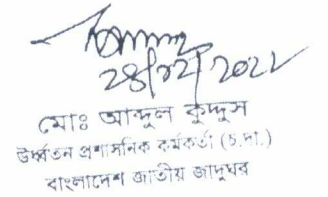 28/12/2022
মোঃ আব্দুল কুদ্দুস
উর্ধ্বতন প্রশাসনিক কর্মকর্তা (চ.দা.)
বাংলাদেশ জাতীয় জাদুঘর